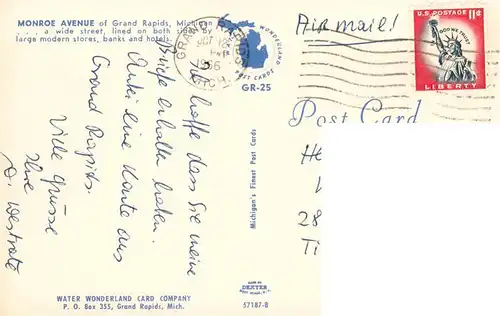 MONROE AVENUE of Grand Rapids, Michigan
... a wide street, lined on both sides by
large modern stores, banks and hotels.
GRAND RAPIDS
1966
MICH.
WONDERLAND
POST CARDS
GR-25
Airmail!
U.S. POSTAGE 11¢
IN GOD WE TRUST
LIBERTY
Post Card
Ich hoffe dass Sie meine
Briefe erhalten haben.
eine Karte aus
Grand Rapids.
Viele Grüsse
Ihre
D. Westrate
Michigan's Finest Post Cards
28
Ti
MADE BY
DEXTER
WATER WONDERLAND CARD COMPANY
P. O. Box 355, Grand Rapids, Mich.
57187-B